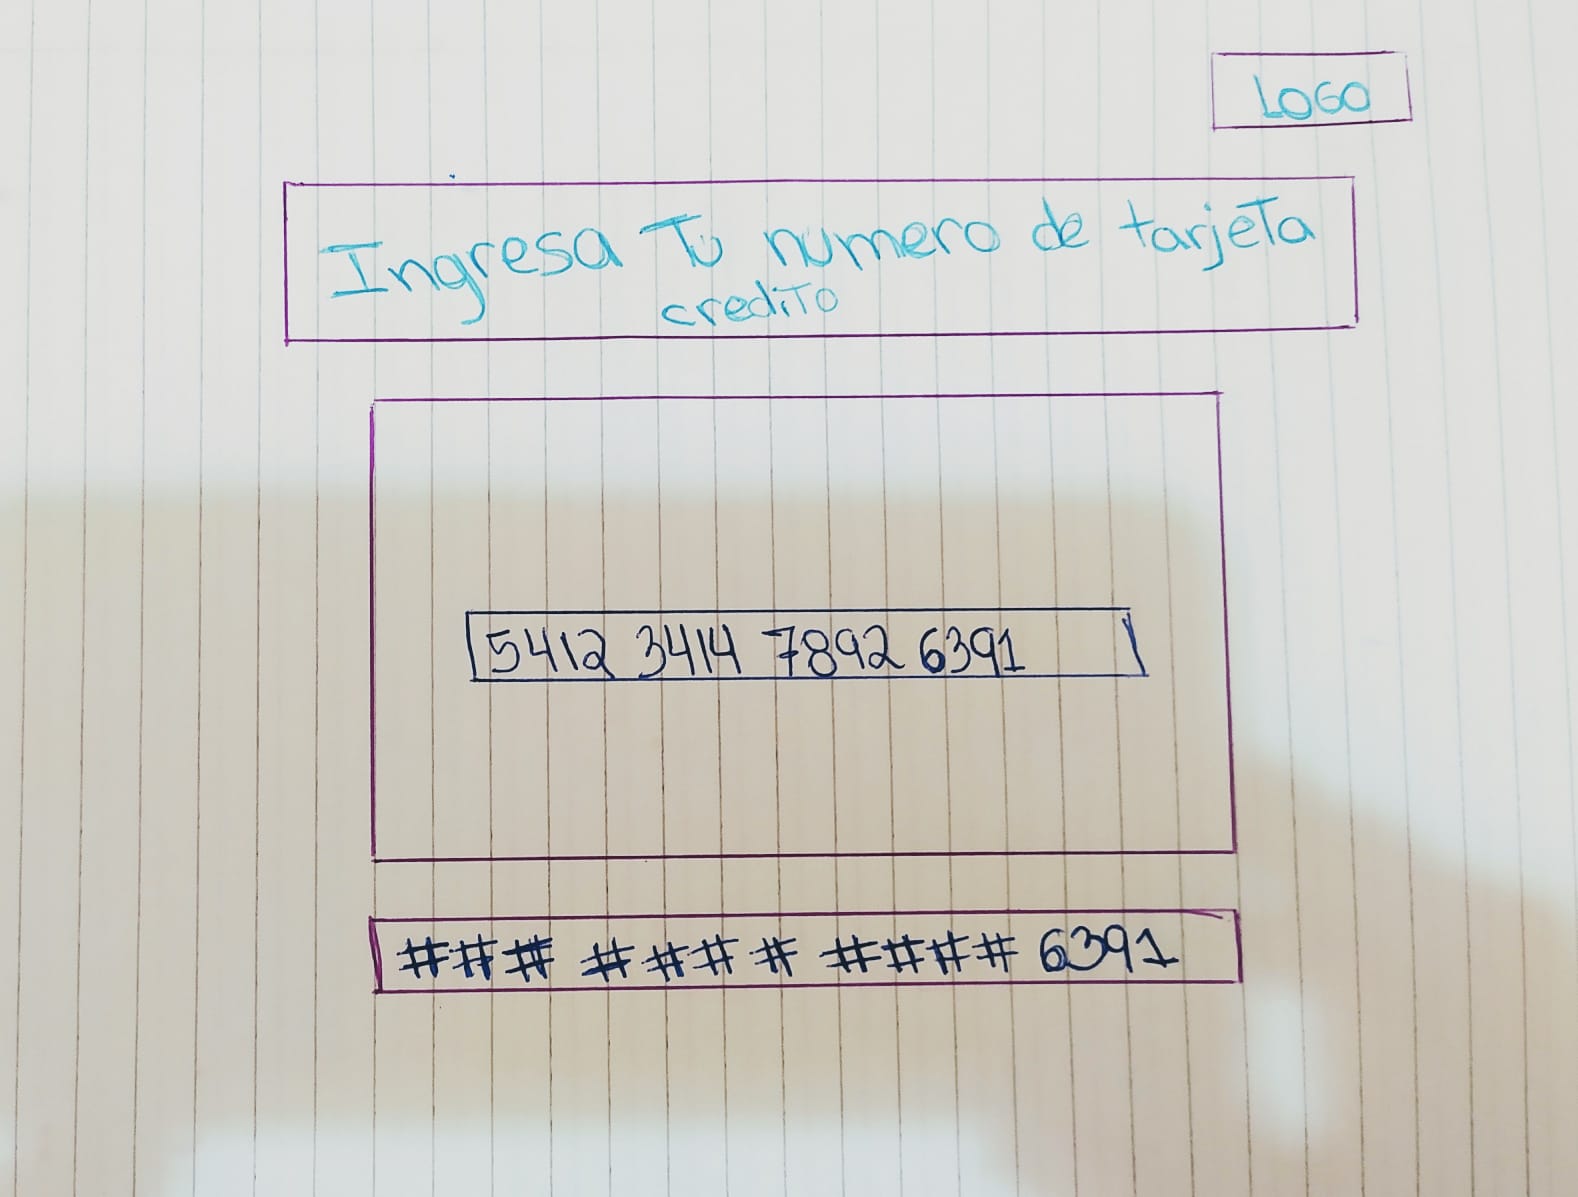 LOGO
Ingresa Tu numero de tarjeta
credito
5412 3414 7892 6391
### #### #### 6391